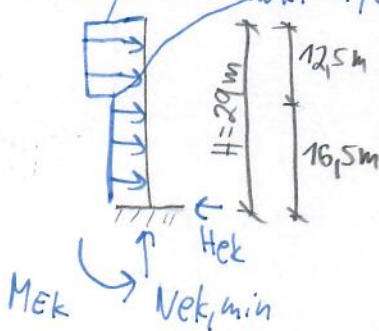 12,5m
H=29m
16,5m
Hek
MEk
Nek,min